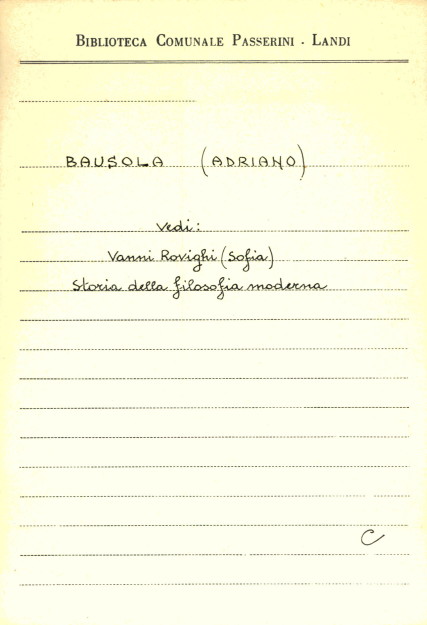 BIBLIOTECA COMUNALE PASSERINI - LANDI
BAUSOLA (ADRIANO)
Vedi:
Vanni Rovighi (Sofia)
Storia della filosofia moderna
C